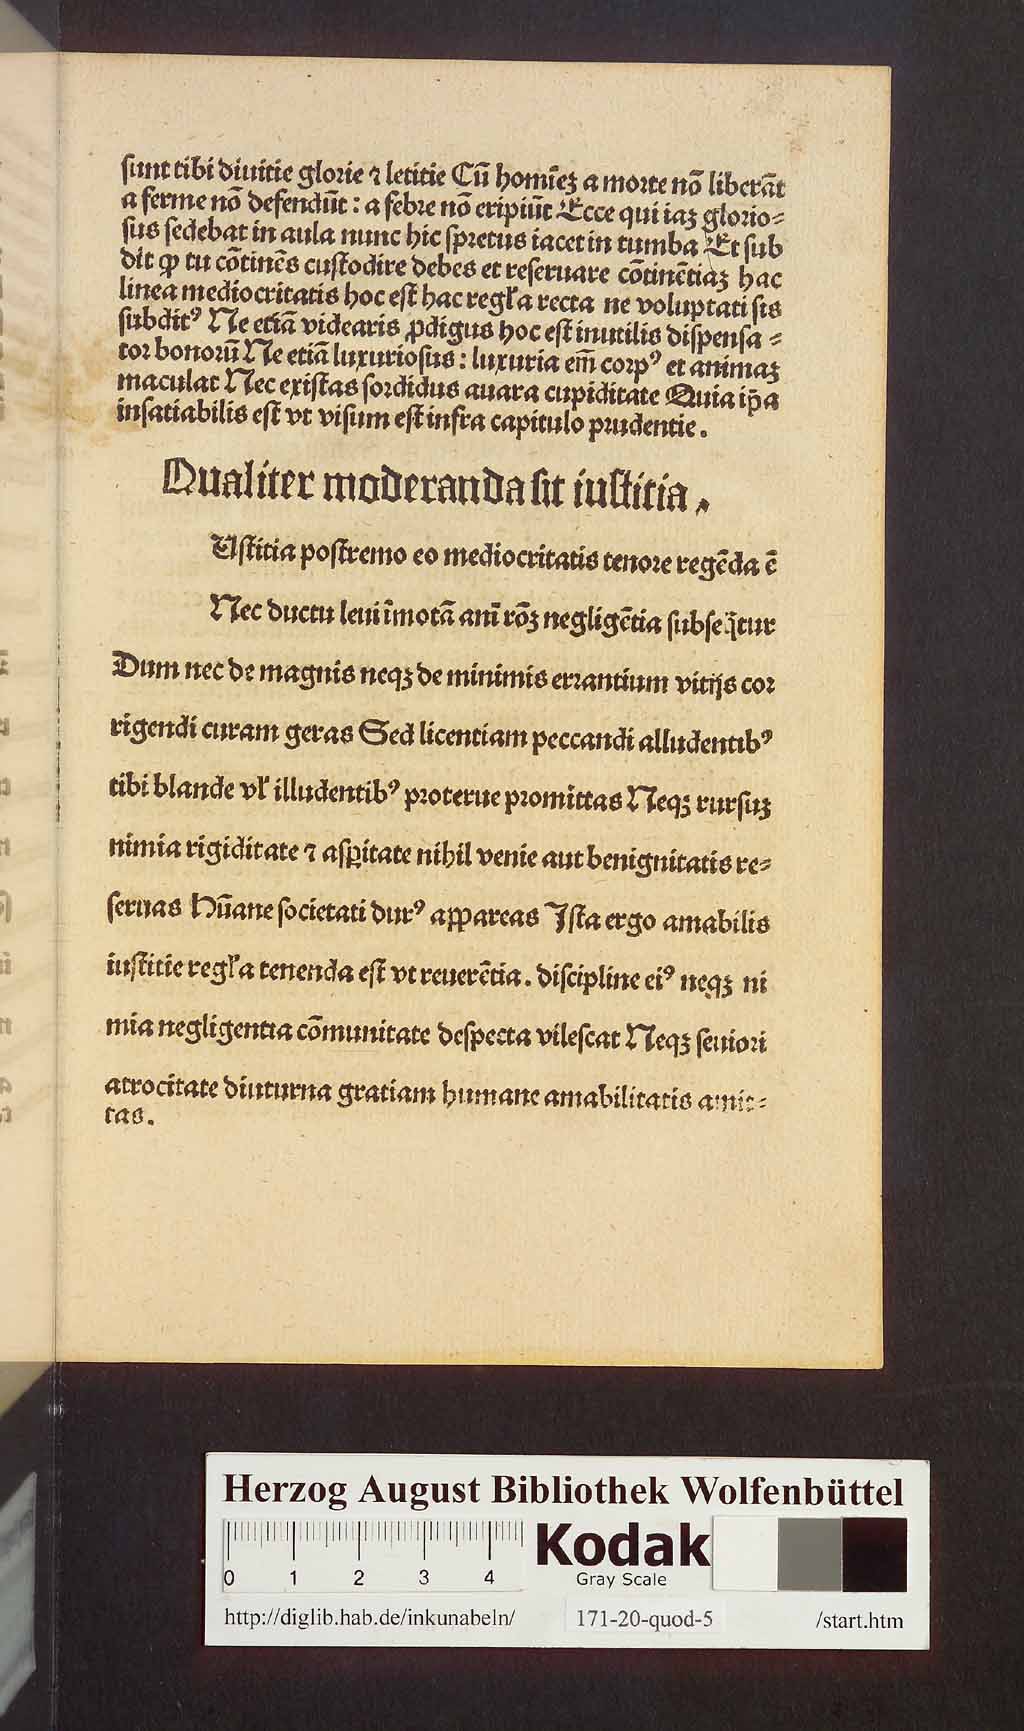 sunt tibi diuitie glorie ⁊ letitie Cū homīeꝫ a morte nō liberāt
a ferme nō defendūt : a febre nō eripiūt Ecce qui iaꝫ glorio⸗
sus sedebat in aula nunc hic spretus iacet in tumba Et sub
dit ꝙ tu cōtinēs custodire debes et reseruare cōtinētiaꝫ hac
linea mediocritatis hoc est hac regl̕a recta ne voluptati sis
subditꝰ Ne etiā videaris ꝓdigus hoc est inutilis dispensa ⸗
tor bonorū Ne etiā luxuriosus : luxuria em̄ corpꝰ et animaꝫ
maculat Nec existas sordidus auara cupiditate Quia ip̄a
insatiabilis est vt visum est infra capitulo prudentie .
Qualiter moderanda sit iustitia .
Ustitia postremo eo mediocritatis tenore regēda ē
Nec ductu leui īmotā anī rōꝫ negligētia subseq̄tur
Dum nec de magnis neqꝫ de minimis errantium vitijs cor
rigendi curam geras Sed licentiam peccandi alludentibꝰ
tibi blande vl̕ illudentibꝰ proterue promittas Neqꝫ rursuꝫ
nimia rigiditate ⁊ asꝑitate nihil venie aut benignitatis re⸗
seruas Hūane societati durꝰ appareas Ista ergo amabilis
iustitie regl̕a tenenda est vt reuerētia . discipline eiꝰ neqꝫ ni
mia negligentia cōmunitate despecta vilescat Neqꝫ seuiori
atrocitate diuturna gratiam humane amabilitatis amit⸗
tas .
Herzog August Bibliothek Wolfenbüttel
0 1 2 3 4
Kodak
Gray Scale
http://diglib.hab.de/inkunabeln/ 171-20-quod-5 /start.htm